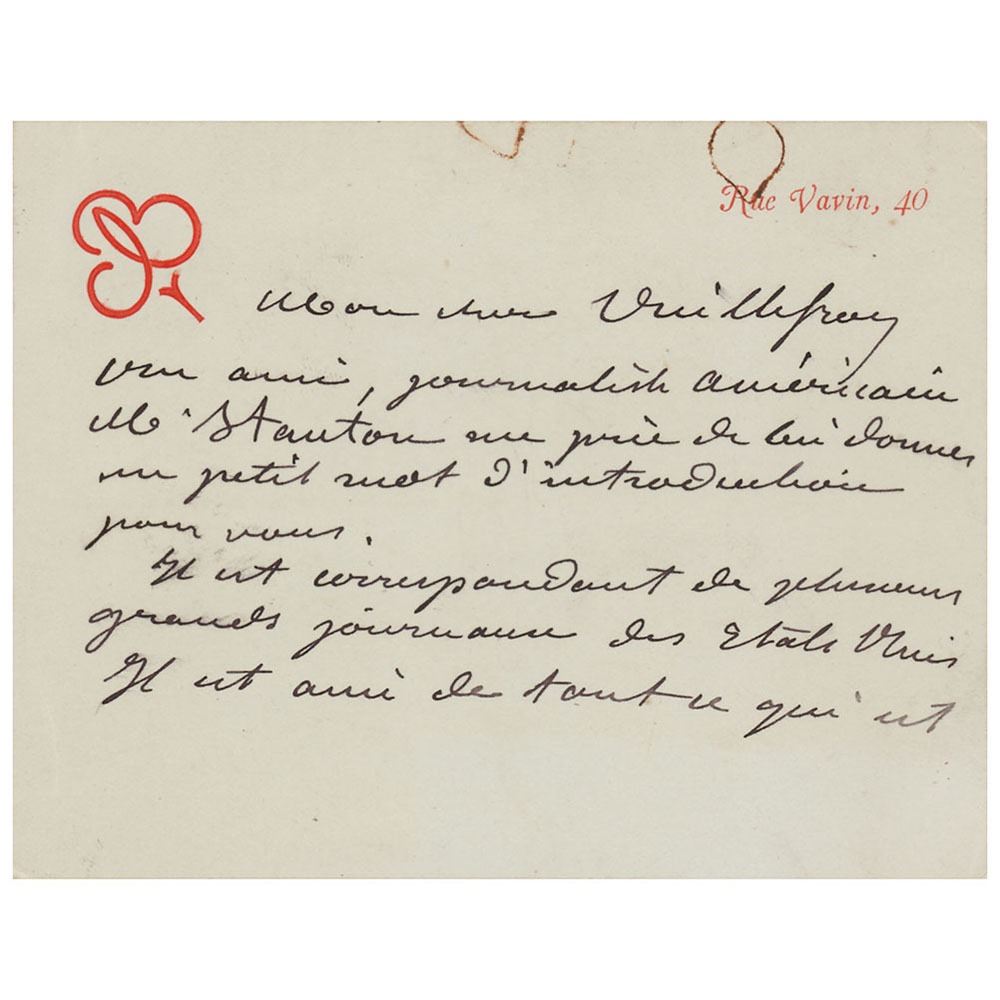 Rue Vavin, 40
Mon cher Vuillefroy
un ami, journaliste américain
Mr Stanton me prie de lui donner
un petit mot d'introduction
pour vous.
Il est correspondant de plusieurs
grands journaux des Etats Unis
Il est ami de tout ce qui est